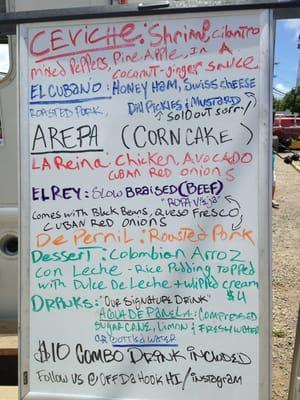 CEVICHE: Shrimp, Cilantro
mixed Peppers, Pine Apple, In A
coconut-ginger sauce
EL CUBANO: Honey Ham, Swiss cheese
Roasted Pork, Dill Pickles & Mustard
Sold out sorry
AREPA (CORN CAKE)
La Reina: Chicken, Avocado
Cuban Red Onions
EL REY: Slow Braised (BEEF)
"Ropa Vieja"
Comes with Black Beans, Queso Fresco,
Cuban Red Onions
De Pernil: Roasted Pork
Dessert: Colombian Arroz
con Leche - Rice Pudding topped
with Dulce De Leche + whipped cream
$4
Dranks: "Our Signature Drink"
AGUA DE PANELA: Compressed
Sugar Cane, Limon & Fresh Water
or Bottled Water
$10 Combo Drank Included
Follow us @OffDaHookHI/instagram